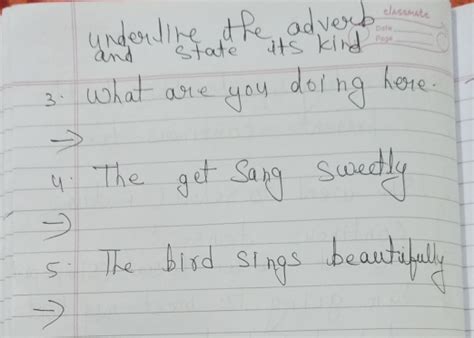 classmate
Date
Page
underline the adverb
and state its kind
3. What are you doing here.
→
4. The get Sang sweetly
→
5. The bird sings beautifully
→